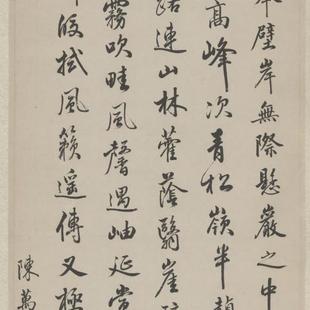 壁岸無際懸巖之中
高峰次青松嶺半
連山林藿蔭翳崖
霧吹畦風馨過岫延常
拭風籟遥傳又極
陳萬